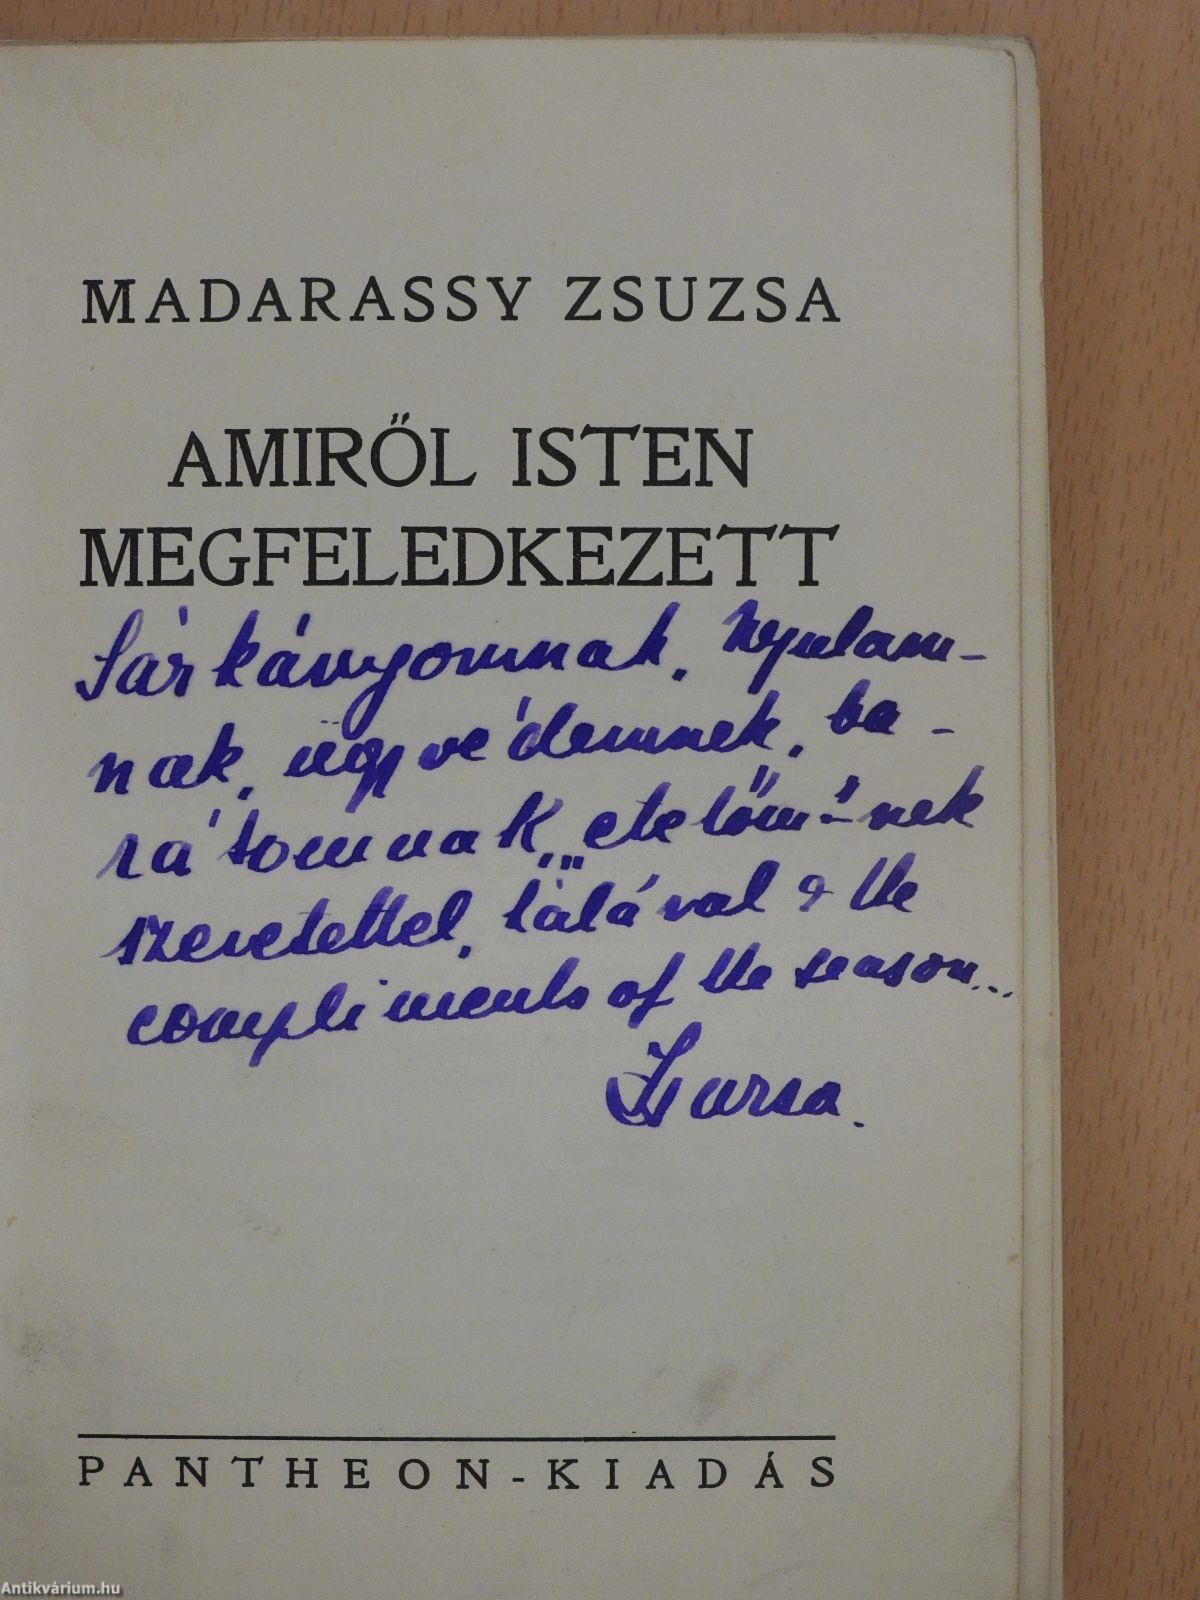 MADARASSY ZSUZSA
AMIRŐL ISTEN
MEGFELEDKEZETT
Sárkányomnak, Nyulam-
nak, ügyvédemnek, ba-
rátomnak, "etetőm"-nek
szeretettel, hálával & the
compliments of the season...
Zsuzsa.
PANTHEON-KIADÁS
Antikvárium.hu